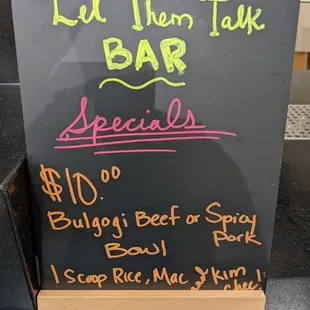 Let Them Talk
BAR
Specials
$10.00
Bulgogi Beef or Spicy
Bowl Pork
1 Scoop Rice, Mac and Kim
chee!